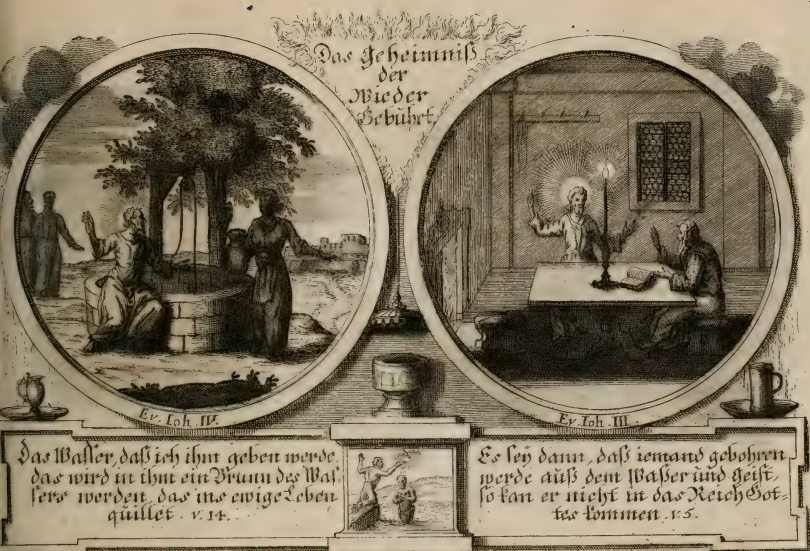 Das Geheimniß
der
Wieder
Gebuhrt
Ev. Ioh. IV.
Ev. Ioh. III.
Das Waßer, daß ich ihm geben werde,
das wird in ihm ein Brunn des Waſ-
ſers werden, das ins ewige Leben
quillet. v. 14.
Es ſey dann, daß iemand gebohren
werde auß dem Waßer und Geiſt,
ſo kan er nicht in das Reich Got-
tes kommen. v. 5.